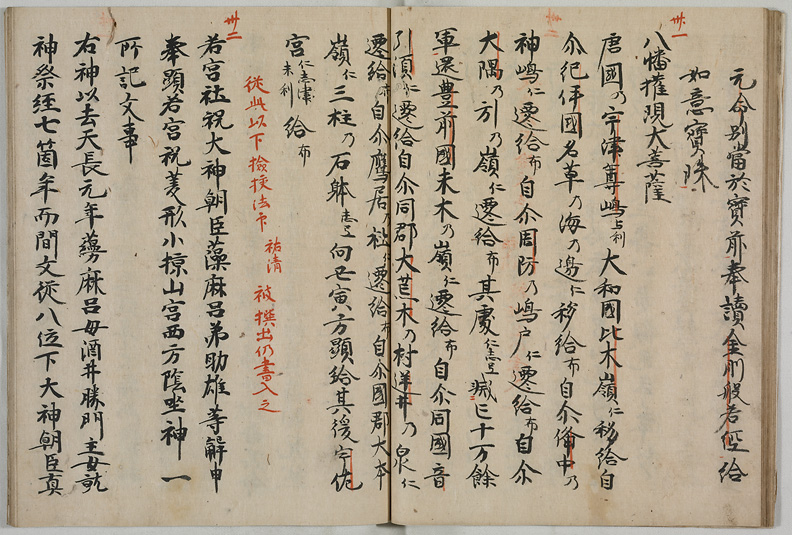 元命別當於寳前奉讀金剛般若經給
如意寳珠
卅一
八幡權現大菩薩
唐國乃宇津尊嶋与利大和國比木嶺仁移給自
尒紀伊國名草乃海乃邊仁移給布自尒備中乃
神嶋仁遷給布自尒周防乃嶋戸仁遷給布自尒
大隅乃引乃嶺仁遷給布其處仁志弖滅已十万餘
軍還豊前國末木乃嶺仁遷給布自尒同國音
引湏仁遷給自尒同郡大荒木乃村逆井乃泉仁
遷給布自尒鷹居乃社仁遷給布自尒國郡大本
嶺仁三柱乃石躰志弖向丑寅方顕給其後宇佐
宮仁志津未利給布
從此以下撿挍法印祐清被撰出仍書入之
卅二
若宮社祝大神朝臣藻麻呂弟助雄等解申
奉顕若宮祝菱形小椋山宮西方隂坐神一
所記文事
右神以去天長元年藻麻呂母酒井勝門主女就
神祭經七箇年而間文從八位下大神朝臣真